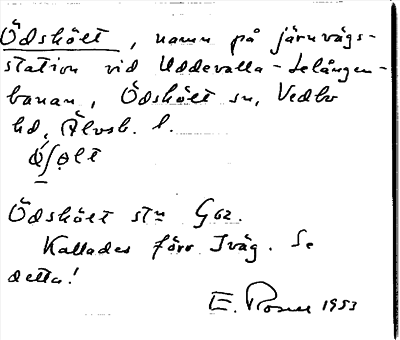 Ödskölt, namn på järnvägs-
station vid Uddevalla-Lelången-
banan, Ödskölt sn, Vedbo
hd, Älvsb. l.
Ödskölt stn G 62.
Kallades förr Iväg. Se
detta!
E. Rosell 1953